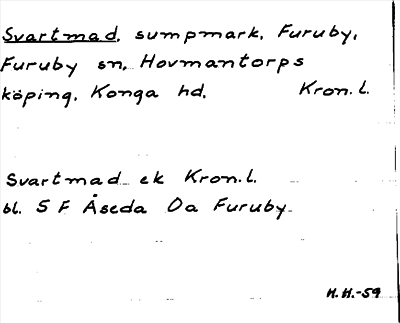 Svartmad, sumpmark, Furuby,
Furuby sn, Hovmantorps
köping, Konga hd, Kron. l.
Svartmad ek Kron. l.
bl. 5 F Åseda Oa Furuby
H.H.-59